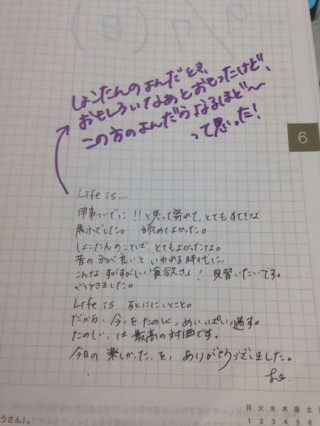 9/9(日)
しょうたんのよんだとき、
おもしろいなあとおもったけど、
この方のよんだらなるほど〜
って思った!
6
Life is...
用事ついでに!!と思って寄って、とてもすてきな
展示でした。 よかった。
しょうたんのことば とてもよかったよ。
昔の方が良いと いわれる時代に
こんな すがすがしい"貪欲さ"! 見習いたいです。
Life is
だから、今をたのしく、めいっぱい過す。
たのしい、は最高の対価です。
今日の楽しかった、を、ありがとうございました。
月 火 水 木 金 土
1 2 3 4 5 6
うさん』